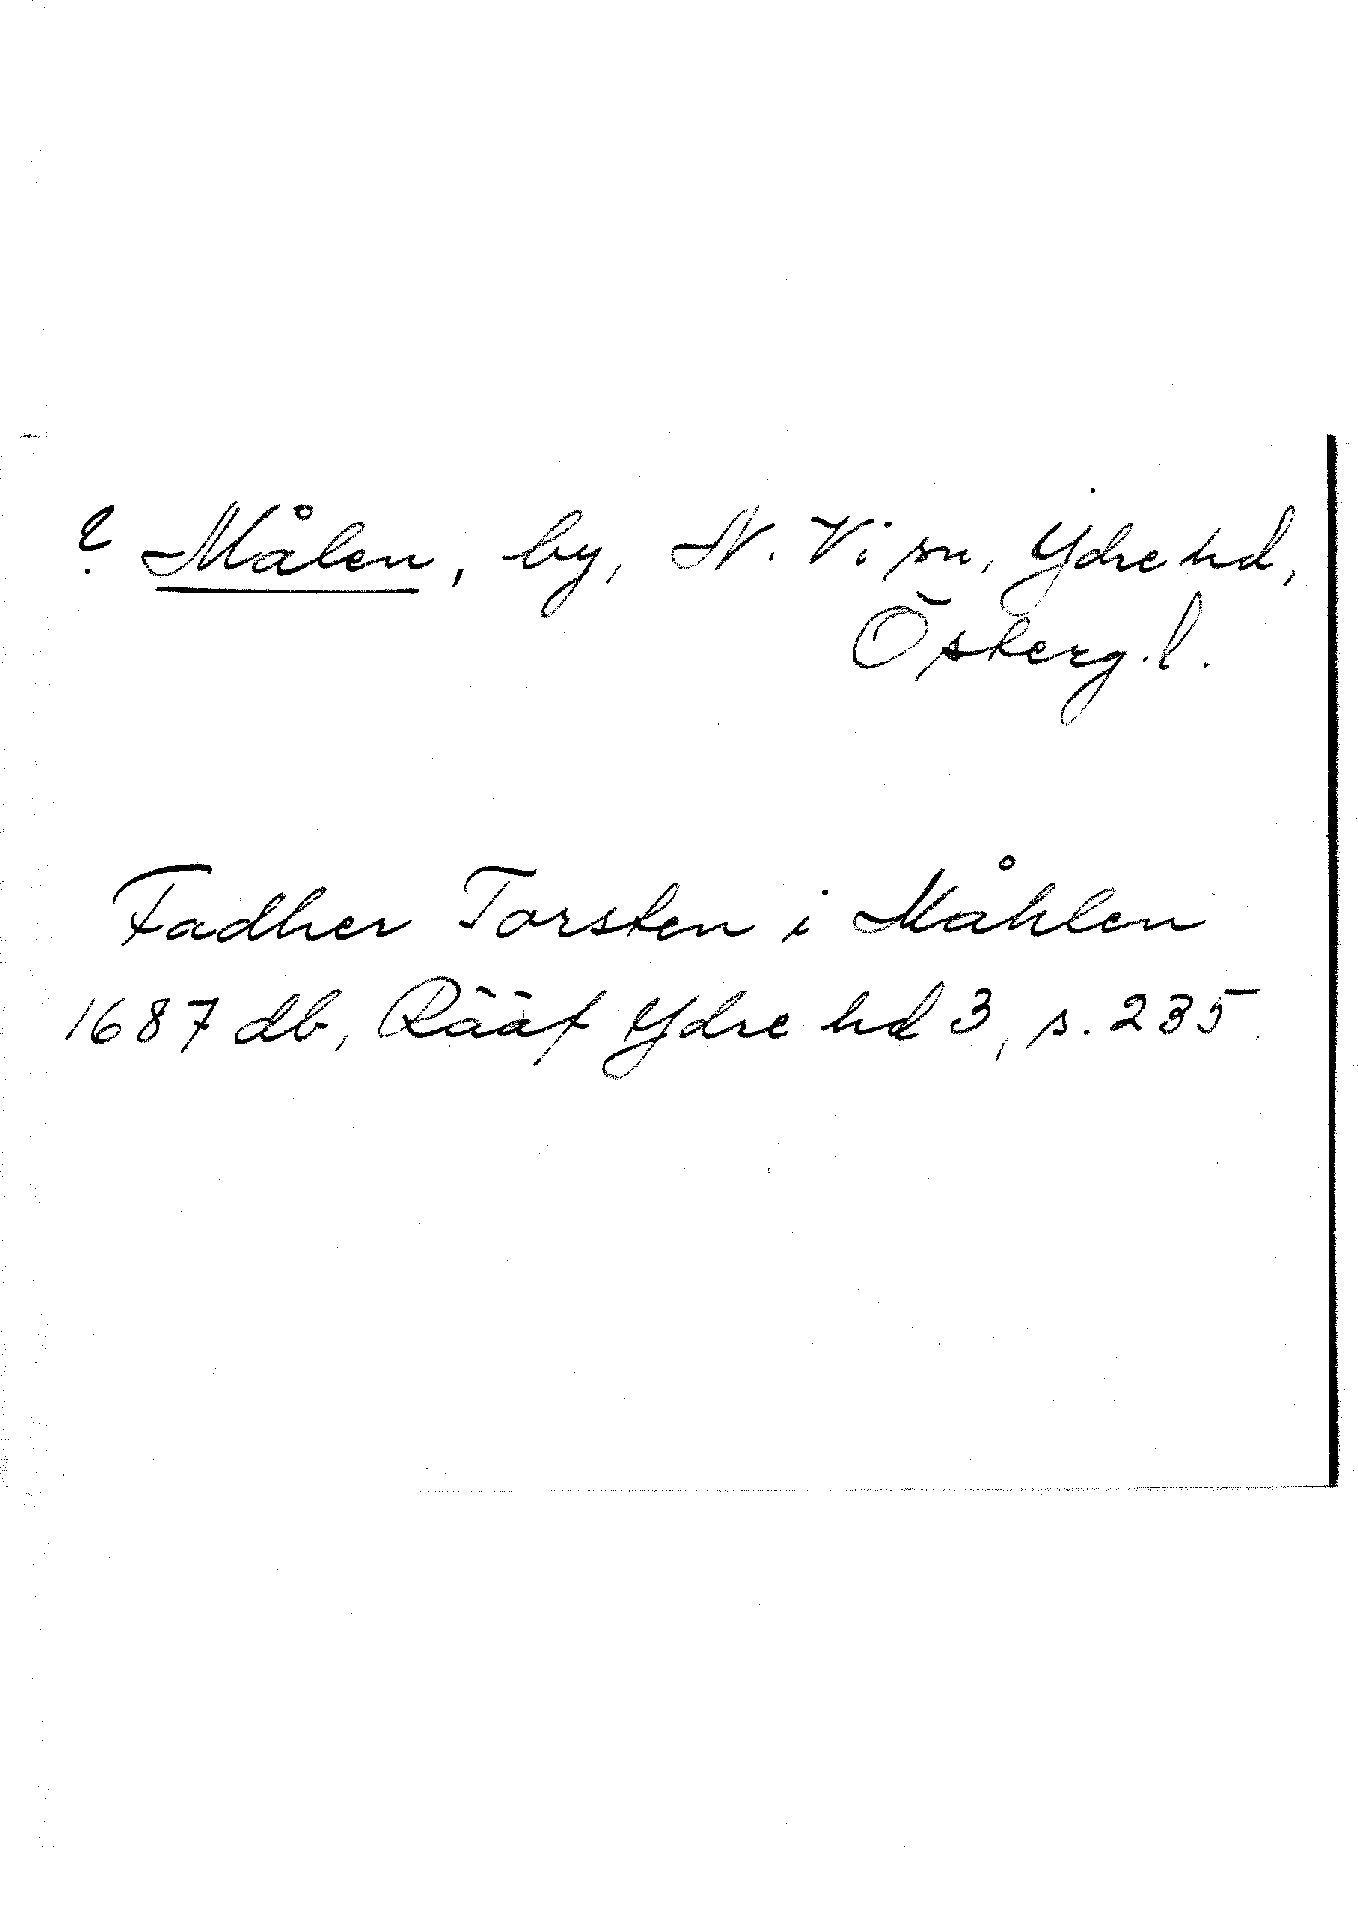 ? Målen, by, N. Vi sn, Ydre hd,
Österg.l.
Fadher Torsten i Måhlen
1687 db, Rääf Ydre hd 3, s. 235.